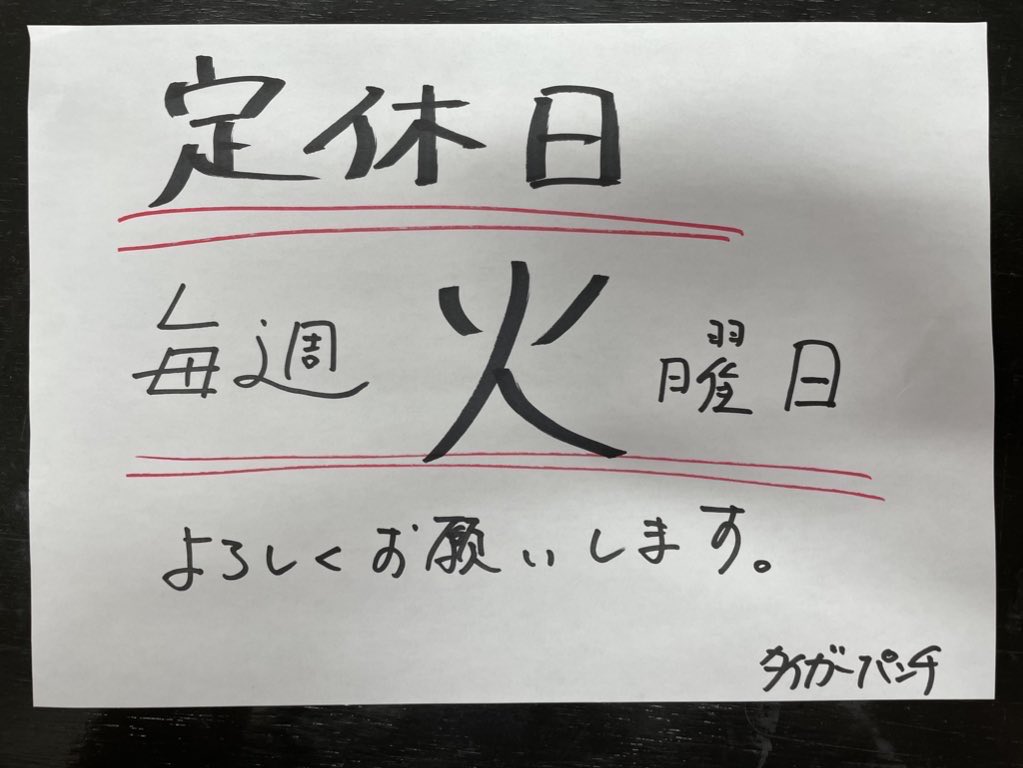 定休日
毎週 火 曜日
よろしくお願いします。
タイガーパンチ